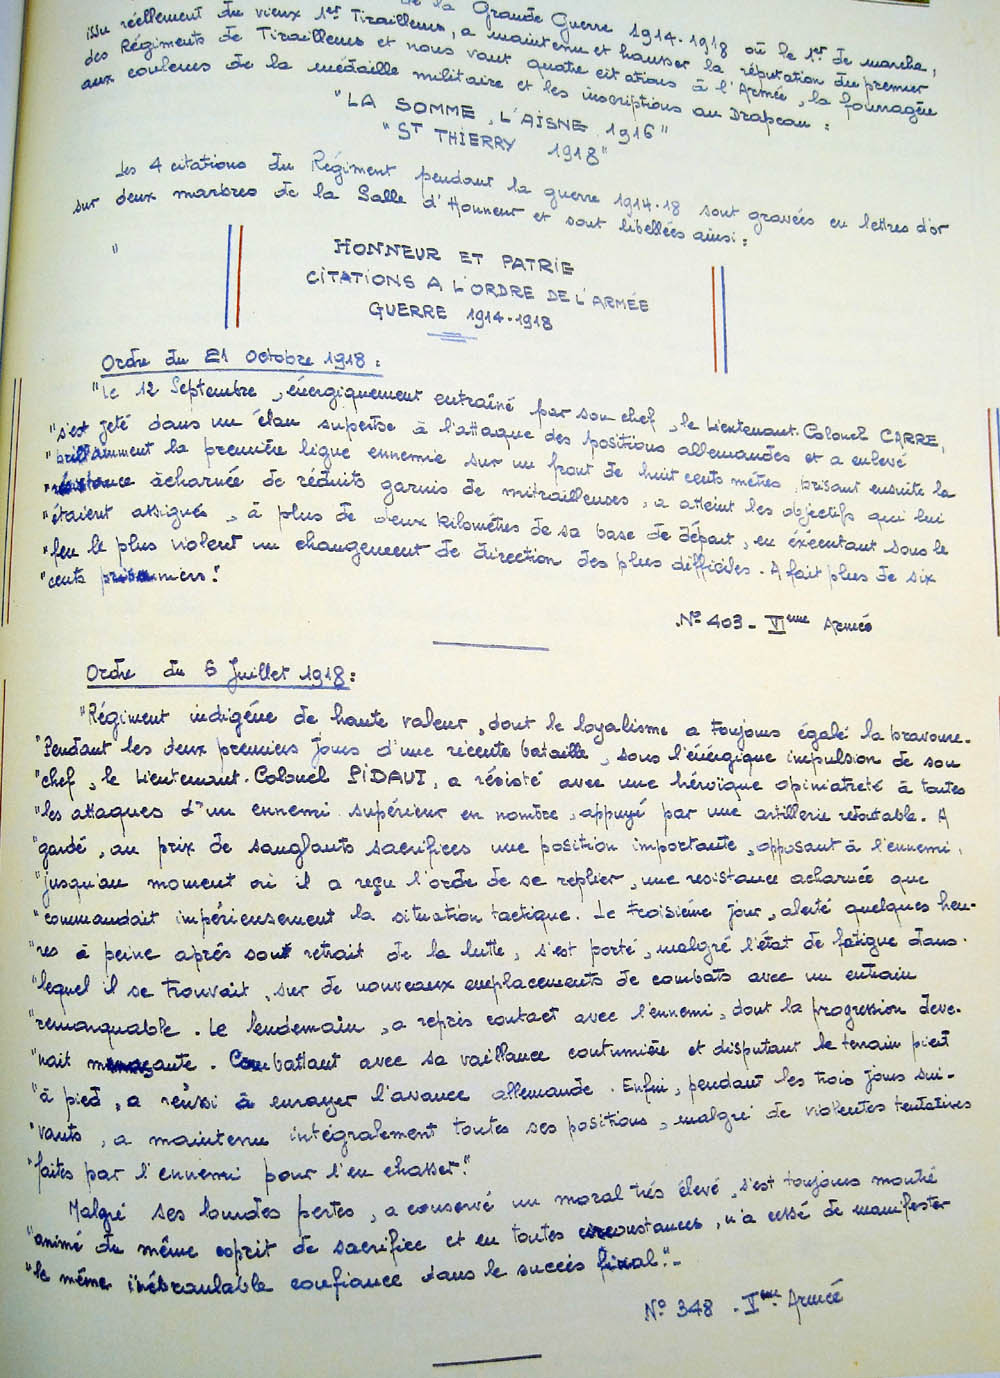 de la Grande Guerre 1914-1918 où le 1er de marche,
issu réellement du vieux 1er Tirailleurs, a maintenu et hausser la réputation du premier
des Régiments de Tirailleurs et nous vaut quatre citations à l'Armée, la fourragère
aux couleurs de la médaille militaire et les inscriptions au Drapeau :
"LA SOMME, L'AISNE 1916"
"ST THIERRY 1918"
Les 4 citations du Régiment pendant la guerre 1914-18 sont gravées en lettres d'or
sur deux marbres de la Salle d'Honneur et sont libellées ainsi :
"
HONNEUR ET PATRIE
CITATIONS A L'ORDRE DE L'ARMÉE
GUERRE 1914-1918
Ordre du 21 Octobre 1918 :
"Le 12 Septembre, énergiquement entraîné par son chef, le Lieutenant-Colonel CARRE,
"s'est jeté dans un élan superbe à l'attaque des positions allemandes et a enlevé
"brillamment la première ligne ennemie sur un front de huit cents mètres, brisant ensuite la
"résistance acharnée de réduits garnis de mitrailleuses, a atteint les objectifs qui lui
"étaient assignés, à plus de deux kilomètres de sa base de départ, en éxécutant sous le
"feu le plus violent un changement de direction des plus difficiles. A fait plus de six
"cents prisonniers."
N° 403 - VIeme Armée
Ordre du 5 Juillet 1918 :
"Régiment indigène de haute valeur, dont le loyalisme a toujours égalé la bravoure.
"Pendant les deux premiers jours d'une récente bataille, sous l'énérgique impulsion de son
"chef, le Lieutenant-Colonel PIDAUT, a résisté avec une héroïque opiniatreté à toutes
"les attaques d'un ennemi supérieur en nombre, appuyé par une artillerie redoutable. A
"gardé, au prix de sanglants sacrifices une position importante, opposant à l'ennemi,
"jusqu'au moment où il a reçu l'ordre de se replier, une resistance acharnée que
"commandait impérieusement la situation tactique. Le troisième jour, alerté quelques heu-
"res à peine après son retrait de la lutte, s'est porté, malgré l'état de fatigue dans
"lequel il se trouvait, sur de nouveaux emplacements de combats avec un entrain
"remarquable. Le lendemain, a repris contact avec l'ennemi, dont la progression deve-
"nait menaçante. Combattant avec sa vaillance coutumière et disputant le terrain pied
"à pied, a réussi à enrayer l'avance allemande. Enfin, pendant les trois jours sui-
"vants, a maintenu intégralement toutes ses positions, malgré de violentes tentatives
"faites par l'ennemi pour l'en chasser."
Malgré ses lourdes pertes, a conservé un moral très élevé, s'est toujours montré
"animé du même esprit de sacrifice et en toutes circonstances, n'a cessé de manifester
"la même inébranlable confiance dans le succès final."-
N° 348 - Xeme Armée